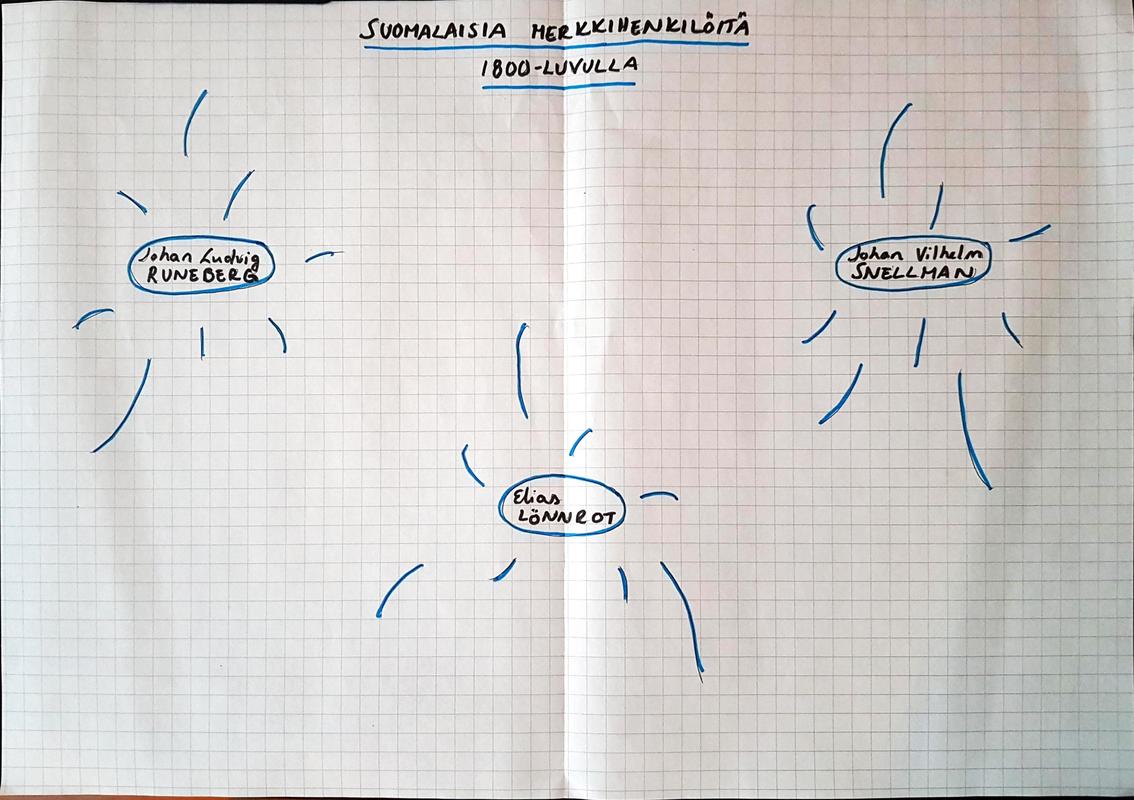 SUOMALAISIA MERKKIHENKILÖITÄ
1800-LUVULLA
Johan Ludvig
RUNEBERG
Johan Vilhelm
SNELLMAN
Elias
LÖNNROT